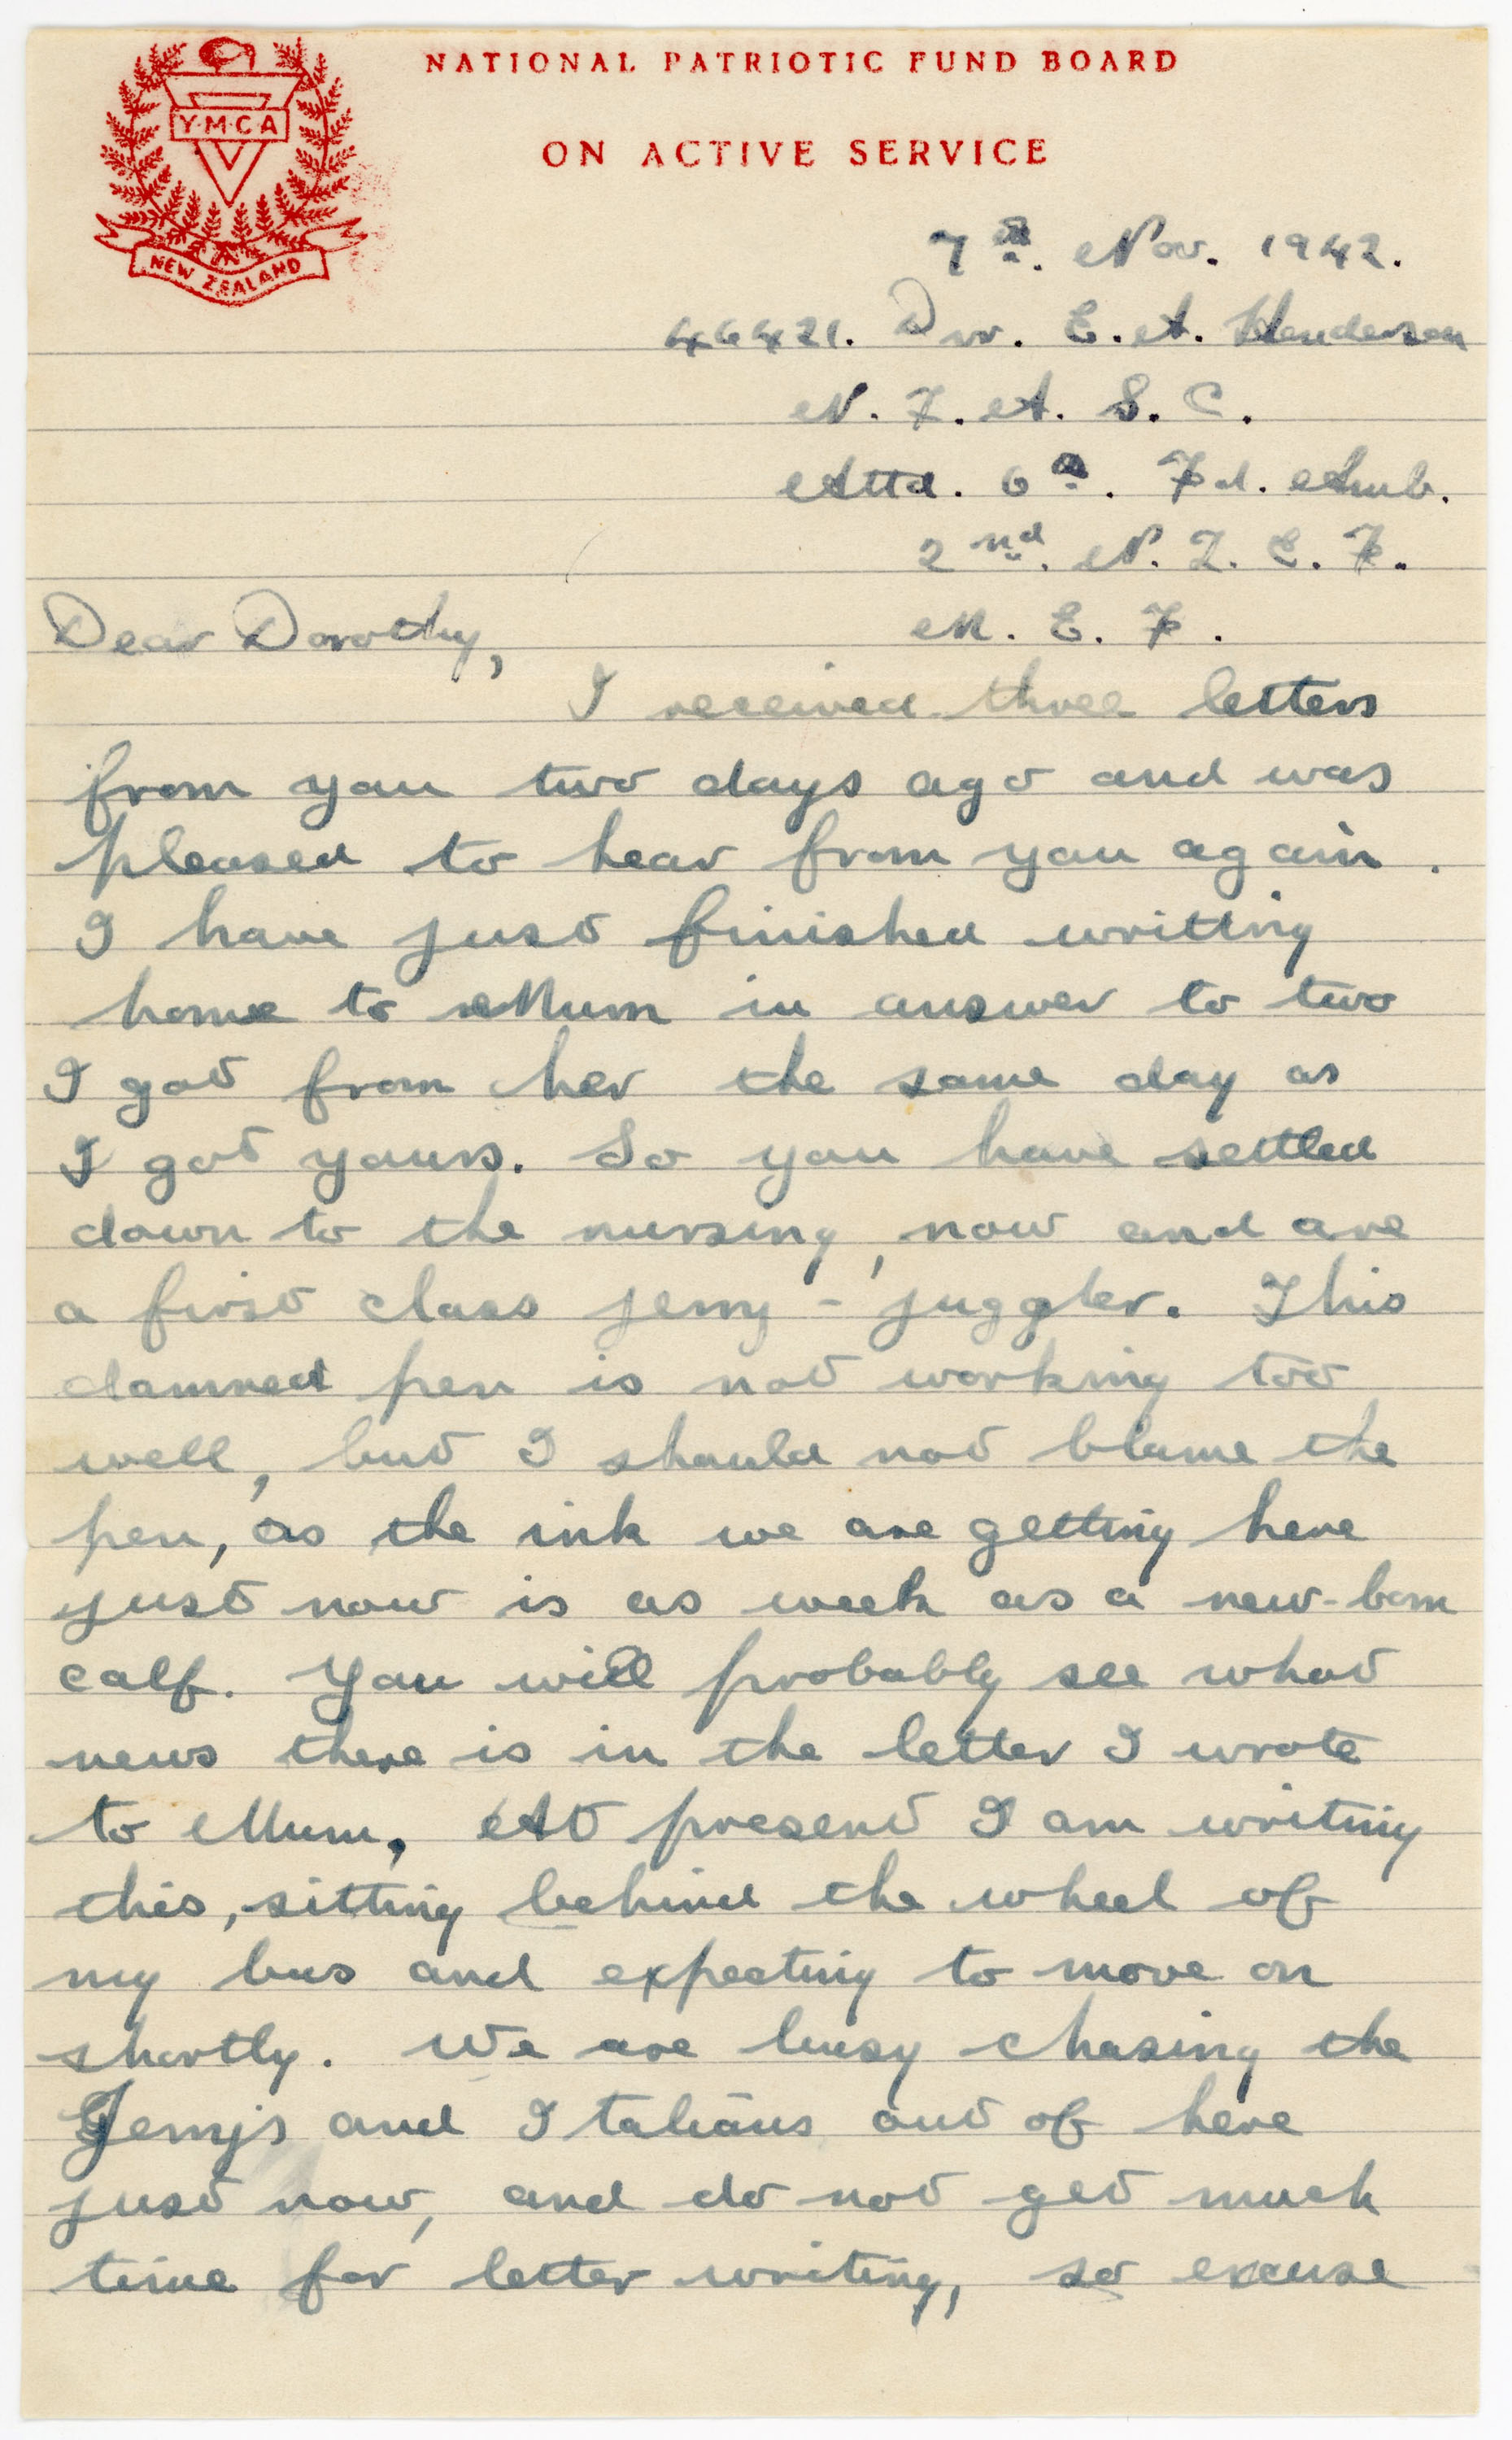 NATIONAL PATRIOTIC FUND BOARD
Y·M·C·A
ON ACTIVE SERVICE
NEW ZEALAND
7th. Nov. 1942.
Dvr. E. A. Henderson
N. Z. A. S. C.
Attd. 6th. Fd. Amb.
2nd. N. Z. E. F.
M. E. F.
Dear Dorothy,
I received three letters
from you two days ago and was
pleased to hear from you again.
I have just finished writting
home to Mum in answer to two
I got from her the same day as
I got yours. So you have settled
down to the nursing, now and are
a first class jerry-juggler. This
damned pen is not working too
well, but I should not blame the
pen, as the ink we are getting here
just now is as week as a new-born
calf. You will probably see what
news there is in the letter I wrote
to Mum. At present I am writing
this, sitting behind the wheel of
my bus and expecting to move on
shortly. We are busy chasing the
Jerrys and Italians out of here
just now, and do not get much
time for letter writing, so excuse